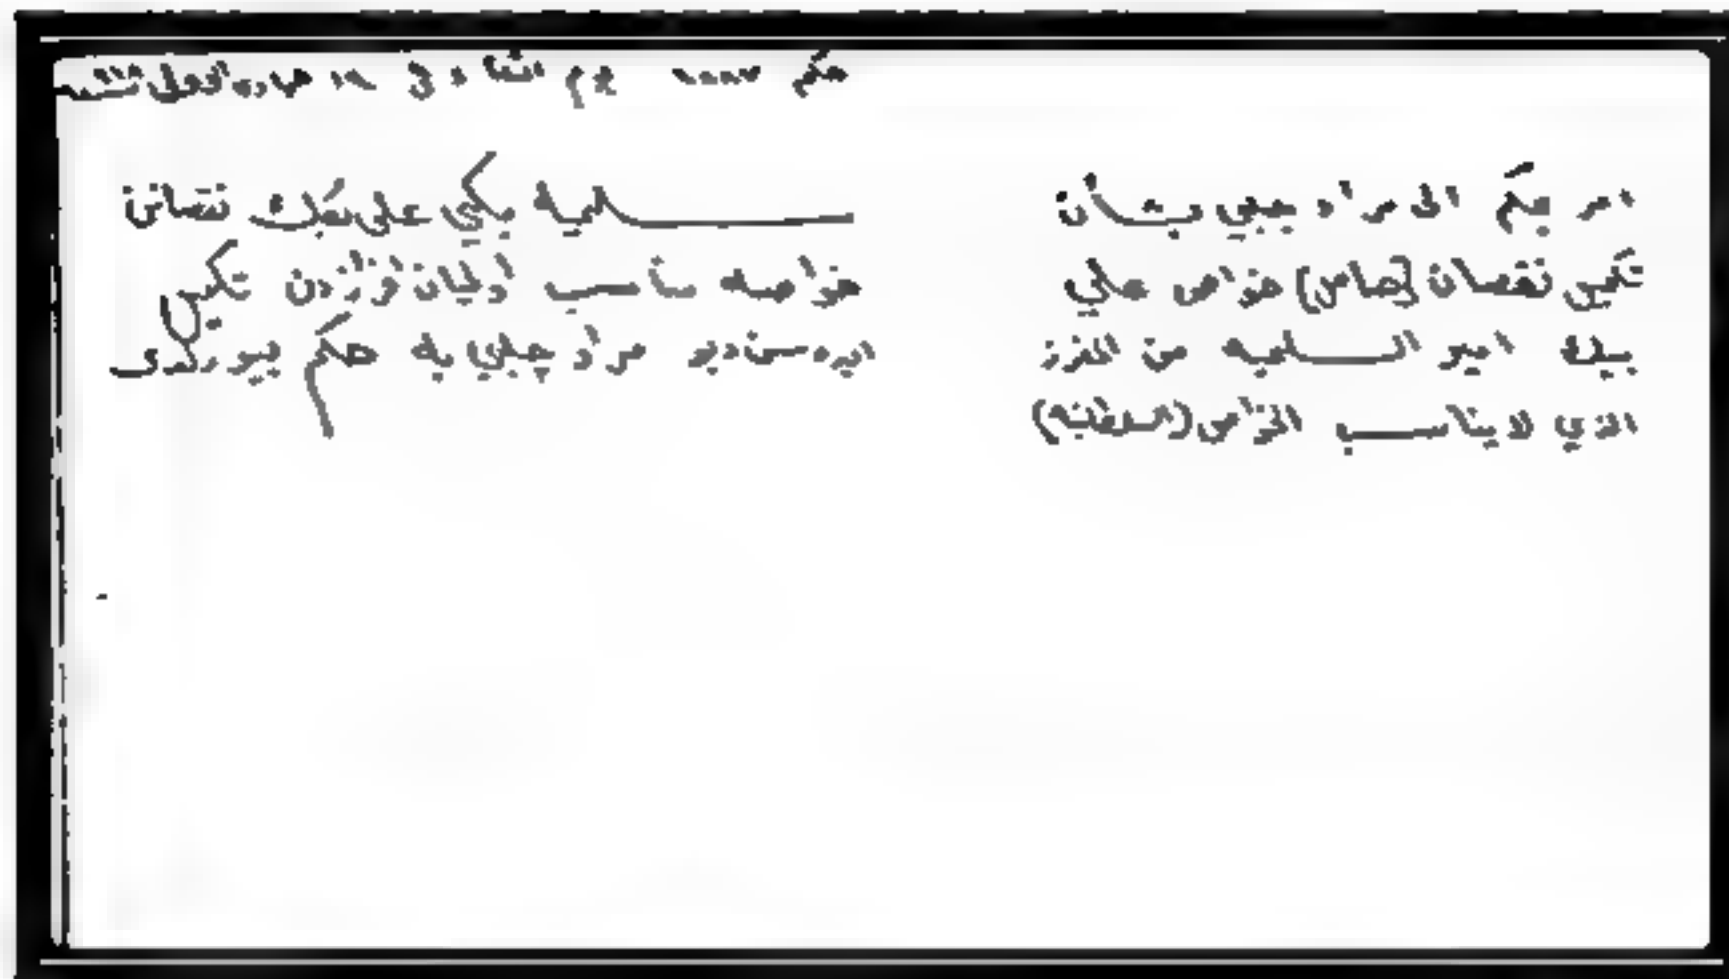 حكم يوم الثلثا في
امر بحكم الى مراد جلبي بشأن
تكميل نقصان (خاص) خواص علي
بيك امير السليه من الفرز
الذي لا يناسب الخواص (السلطانية)
سليه بكي على بكك نقصانن
خواصه مناسب اوليان افرازدن تكميل
ايده سن ديو مراد چلبي يه حكم بيورلدى